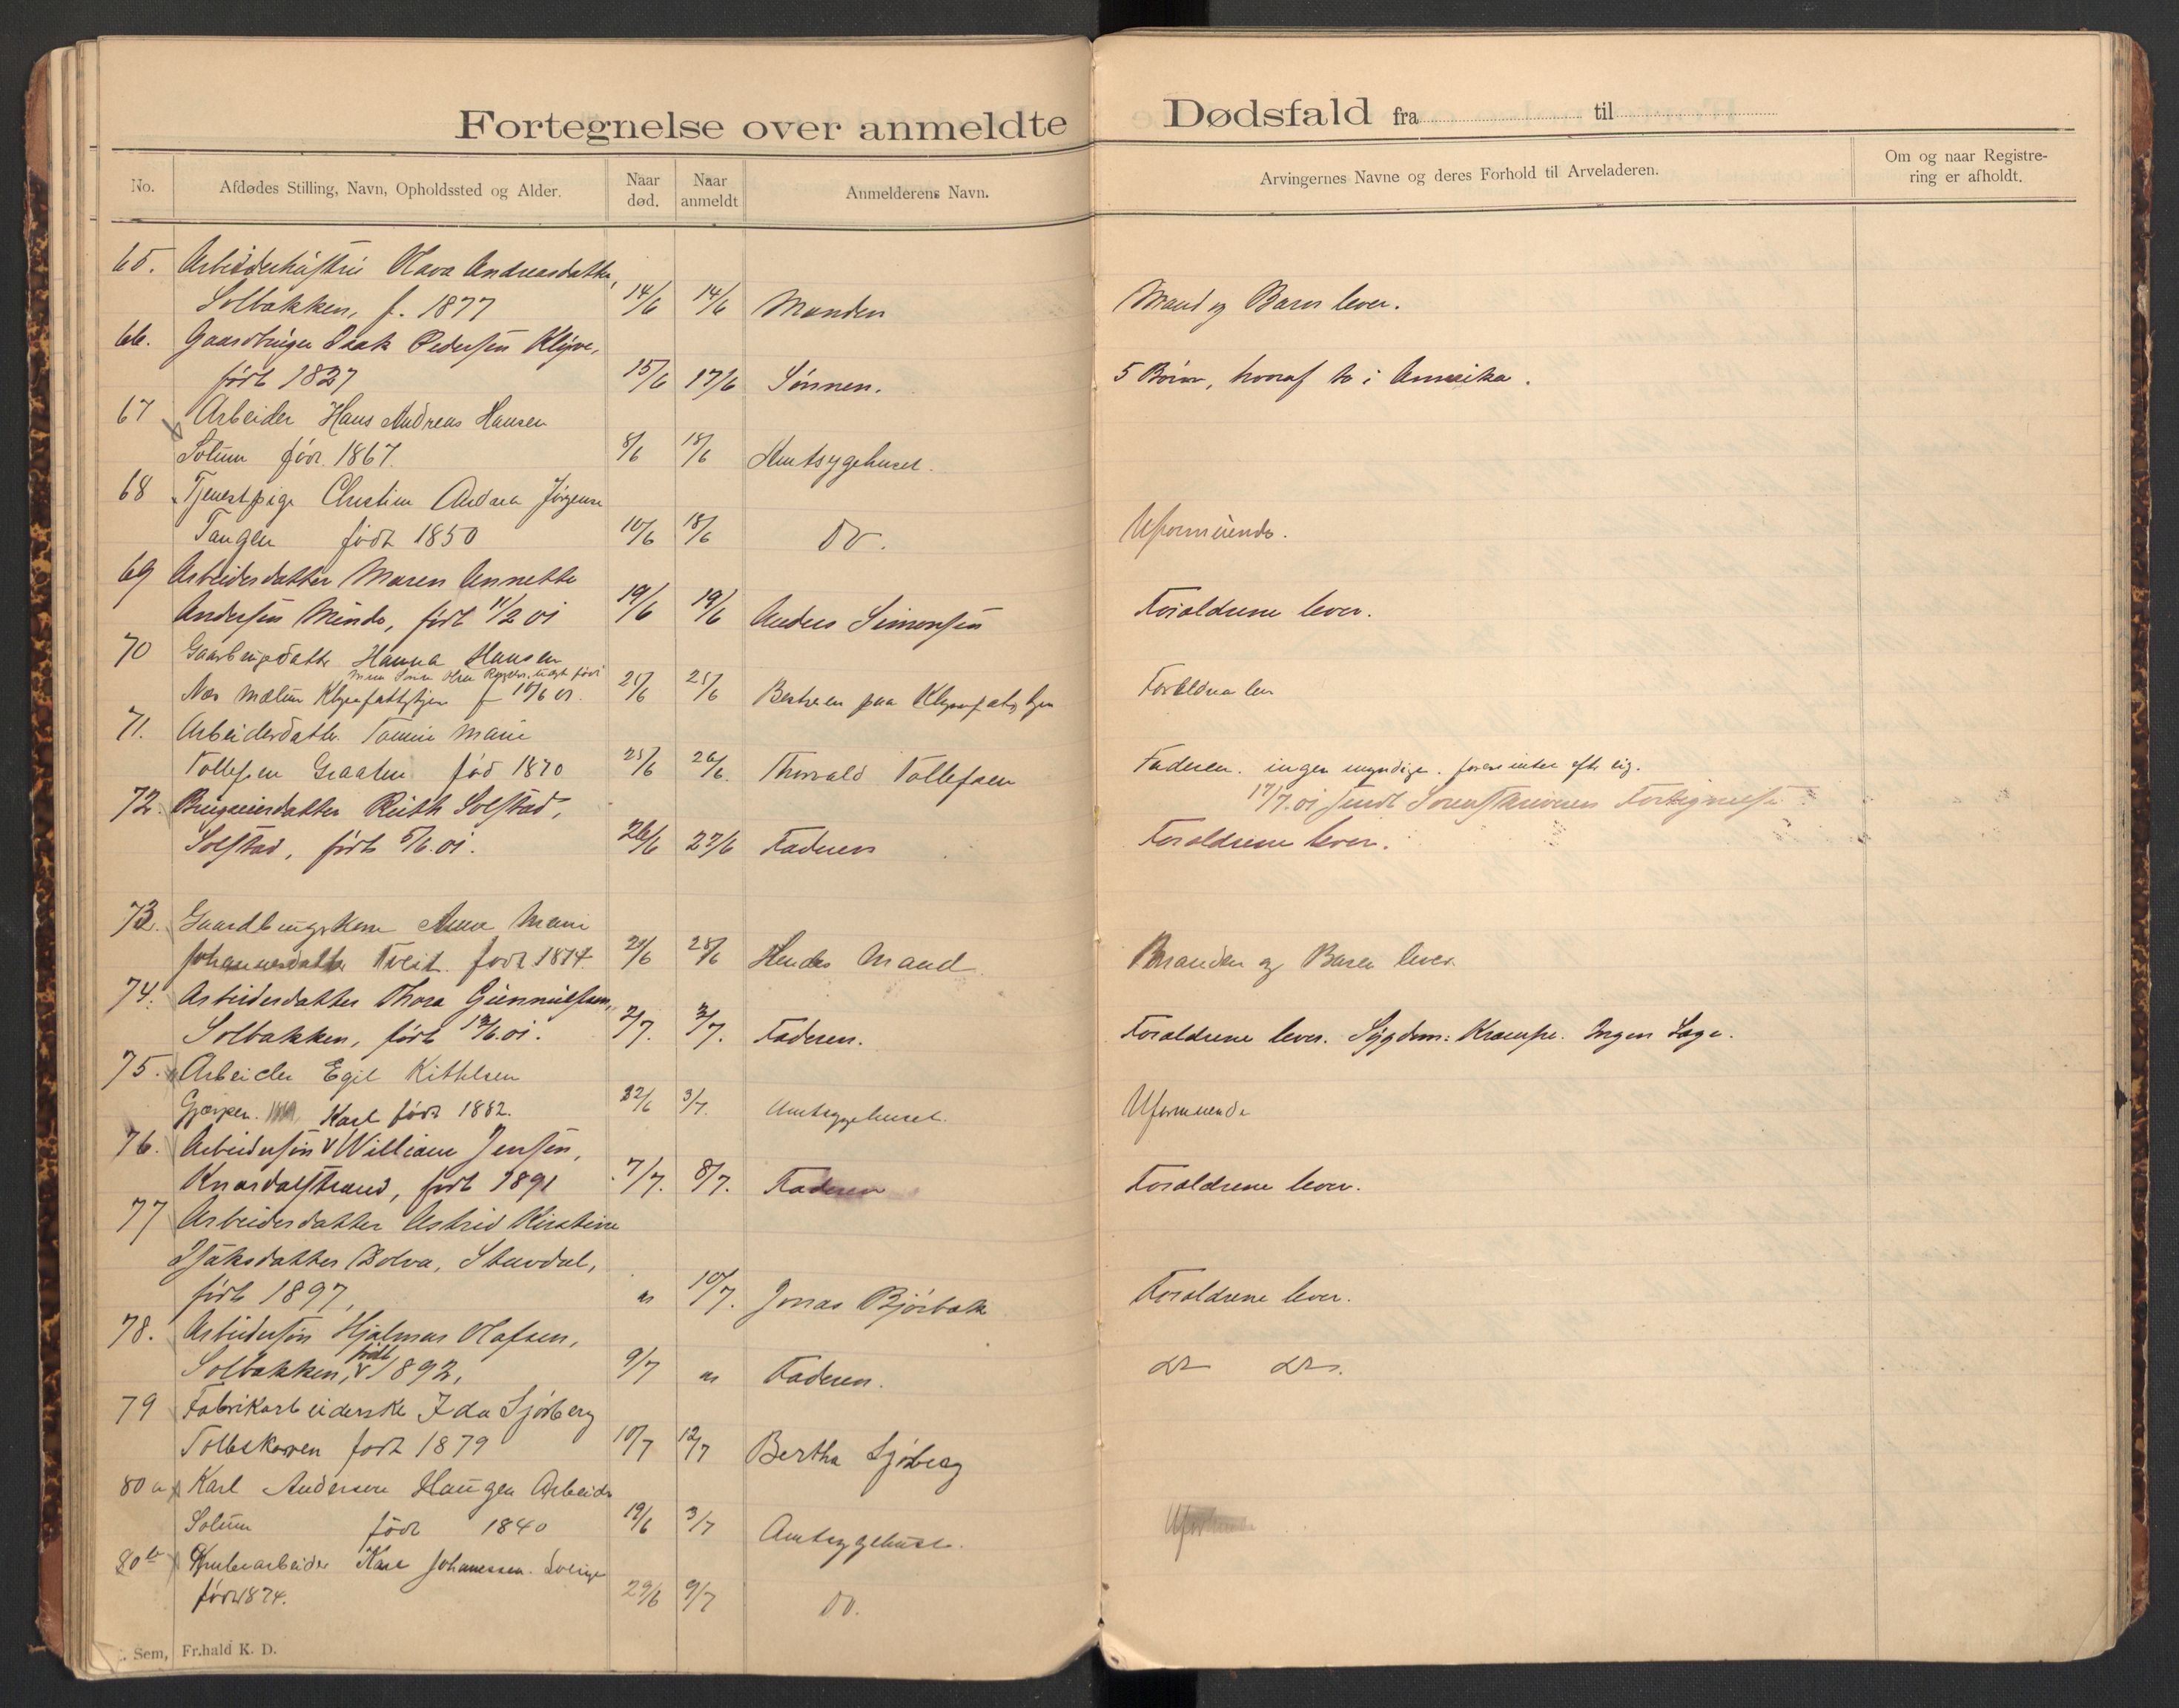 Fortegnelse over anmeldte Dødsfald fra til
No. Afdødes Stilling, Navn, Opholdssted og Alder. Naar død. Naar anmeldt Anmelderens Navn. Arvingernes Navne og deres Forhold til Arveladeren. Om og naar Registrering er afholdt.
65. Arbeiderhustru Olava Andreasdatter,
Solbakken, f. 1877 14/6 14/6 Manden Mand og Barn lever.
66. Gaardbruger Isak Pedersen Klyve,
født 1827 15/6 17/6 Sønnen. 5 Børn, hvoraf to i Amerika.
67 Arbeider Hans Andreas Hansen
Solum född 1867. 8/6 18/6 Amtsygehuset.
68 Tjenestpige Christine Andrea Jørgensen
Tangen født 1850 10/6 18/6 Do. Uformuende.
69 Arbeiderdatter Maren Annette
Andersen Minde, født 11/2 01 19/6 19/6 Anders Simonsen Forældrene lever.
70 Gaardbrugerdatter Hanna Hansen
Nes Mælum Klyvefattighjem f 10/6 01. 21/6 25/6 Bestyreren paa Klyvefattighjem Forældrene lever
71. Arbeiderdatter Tomine Marie
Tollefsen Graaten fød 1870 25/6 26/6. Thorvald Tollefsen Faderen. ingen myndige.
17/7.01 sendt Sorenskriveren Fortegnelse
72. Brugseierdatter Ruth Solstad,
Solstad, født 5/6.01. 26/6 27/6 Faderen Forældrene lever.
73. Gaardbrugerkone Anne Marie
Johannesdatter Tveit. født 1874. 21/6 28/6 Hendes Mand Manden og Barn lever.
74. Arbeiderdatter Thora Gunnulfsen,
Solbakken, født 13/6.01. 2/7. 3/7. Faderen. Forældrene lever. Sygdom: Krampe. Ingen Læge.
75. Arbeider Egil Kittilsen
Gjerpen. Karl født 1882. 22/6 3/7. Amtsygehuset. Uformuende
76. Arbeidersøn William Jensen,
Knardalstrand, født 1891 7/7. 8/7. Faderen Forældrene lever.
77 Arbeiderdatter Astrid Kirstine
Isaksdatter Bolva, Stavdal,
født 1897, " 10/7. Jonas Bjørbæk Forældrene lever.
78. Arbeidersøn Hjalmar Olafsen,
Solbakken, født 1892, 9/7 " Faderen. do do.
79 Fabrikarbeiderske Ida Sjöberg
Tolleskoven født 1879 10/7 12/7 Bertha Sjöberg
80 a Karl Andersen Haugen Arbeider
Solum född 1840 19/6 3/7 Amtsygehuset.
80 b Grubearbeider Karl Johannessen. Sverige
født 1874. 29/6 9/7 Do.
Sem, Fr.hald K. D.